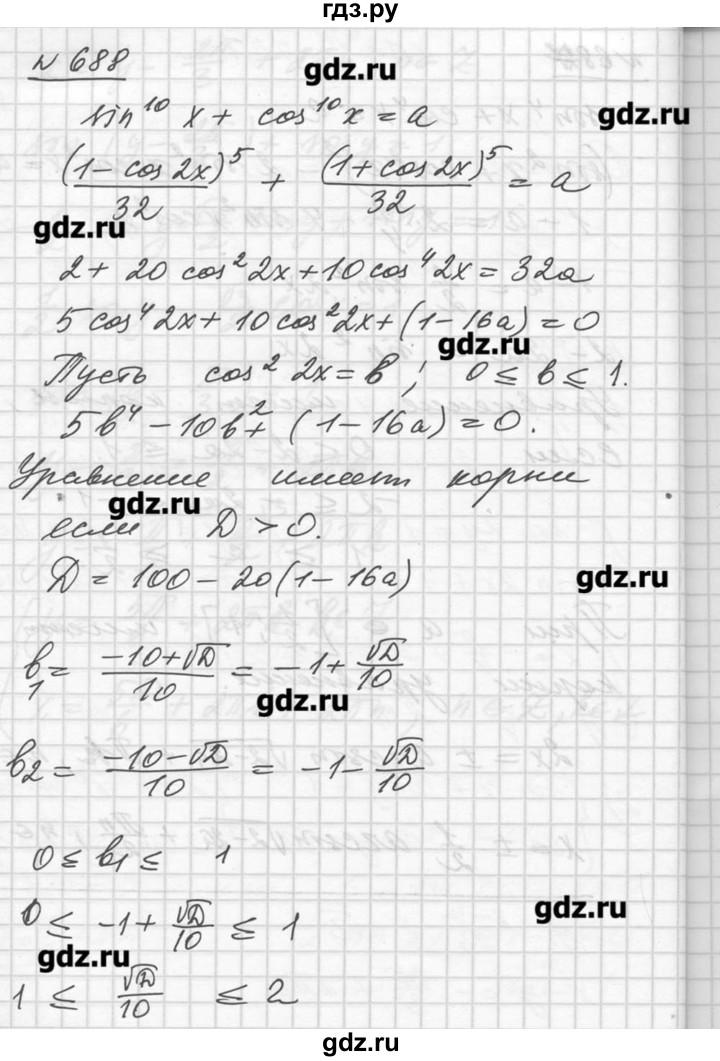 гдз.ру
N 688
gdz.ru
sin¹⁰ x + cos¹⁰ x = a
gdz.ru
(1 - cos 2x)⁵/32 + (1 + cos 2x)⁵/32 = a
gdz.ru
2 + 20 cos² 2x + 10 cos⁴ 2x = 32a
5 cos⁴ 2x + 10 cos² 2x + (1 - 16a) = 0
gdz.ru
Пусть cos² 2x = b ; 0 ≤ b ≤ 1.
5b⁴ - 10b² + (1 - 16a) = 0.
Уравнение имеет корни
gdz.ru
если D > 0.
D = 100 - 20(1 - 16a)
gdz.ru
b₁ = (-10 + √D)/10 = -1 + √D/10
gdz.ru
b₂ = (-10 - √D)/10 = -1 - √D/10
0 ≤ b₁ ≤ 1
gdz.ru
0 ≤ -1 + √D/10 ≤ 1
gdz.ru
1 ≤ √D/10 ≤ 2
gdz.ru